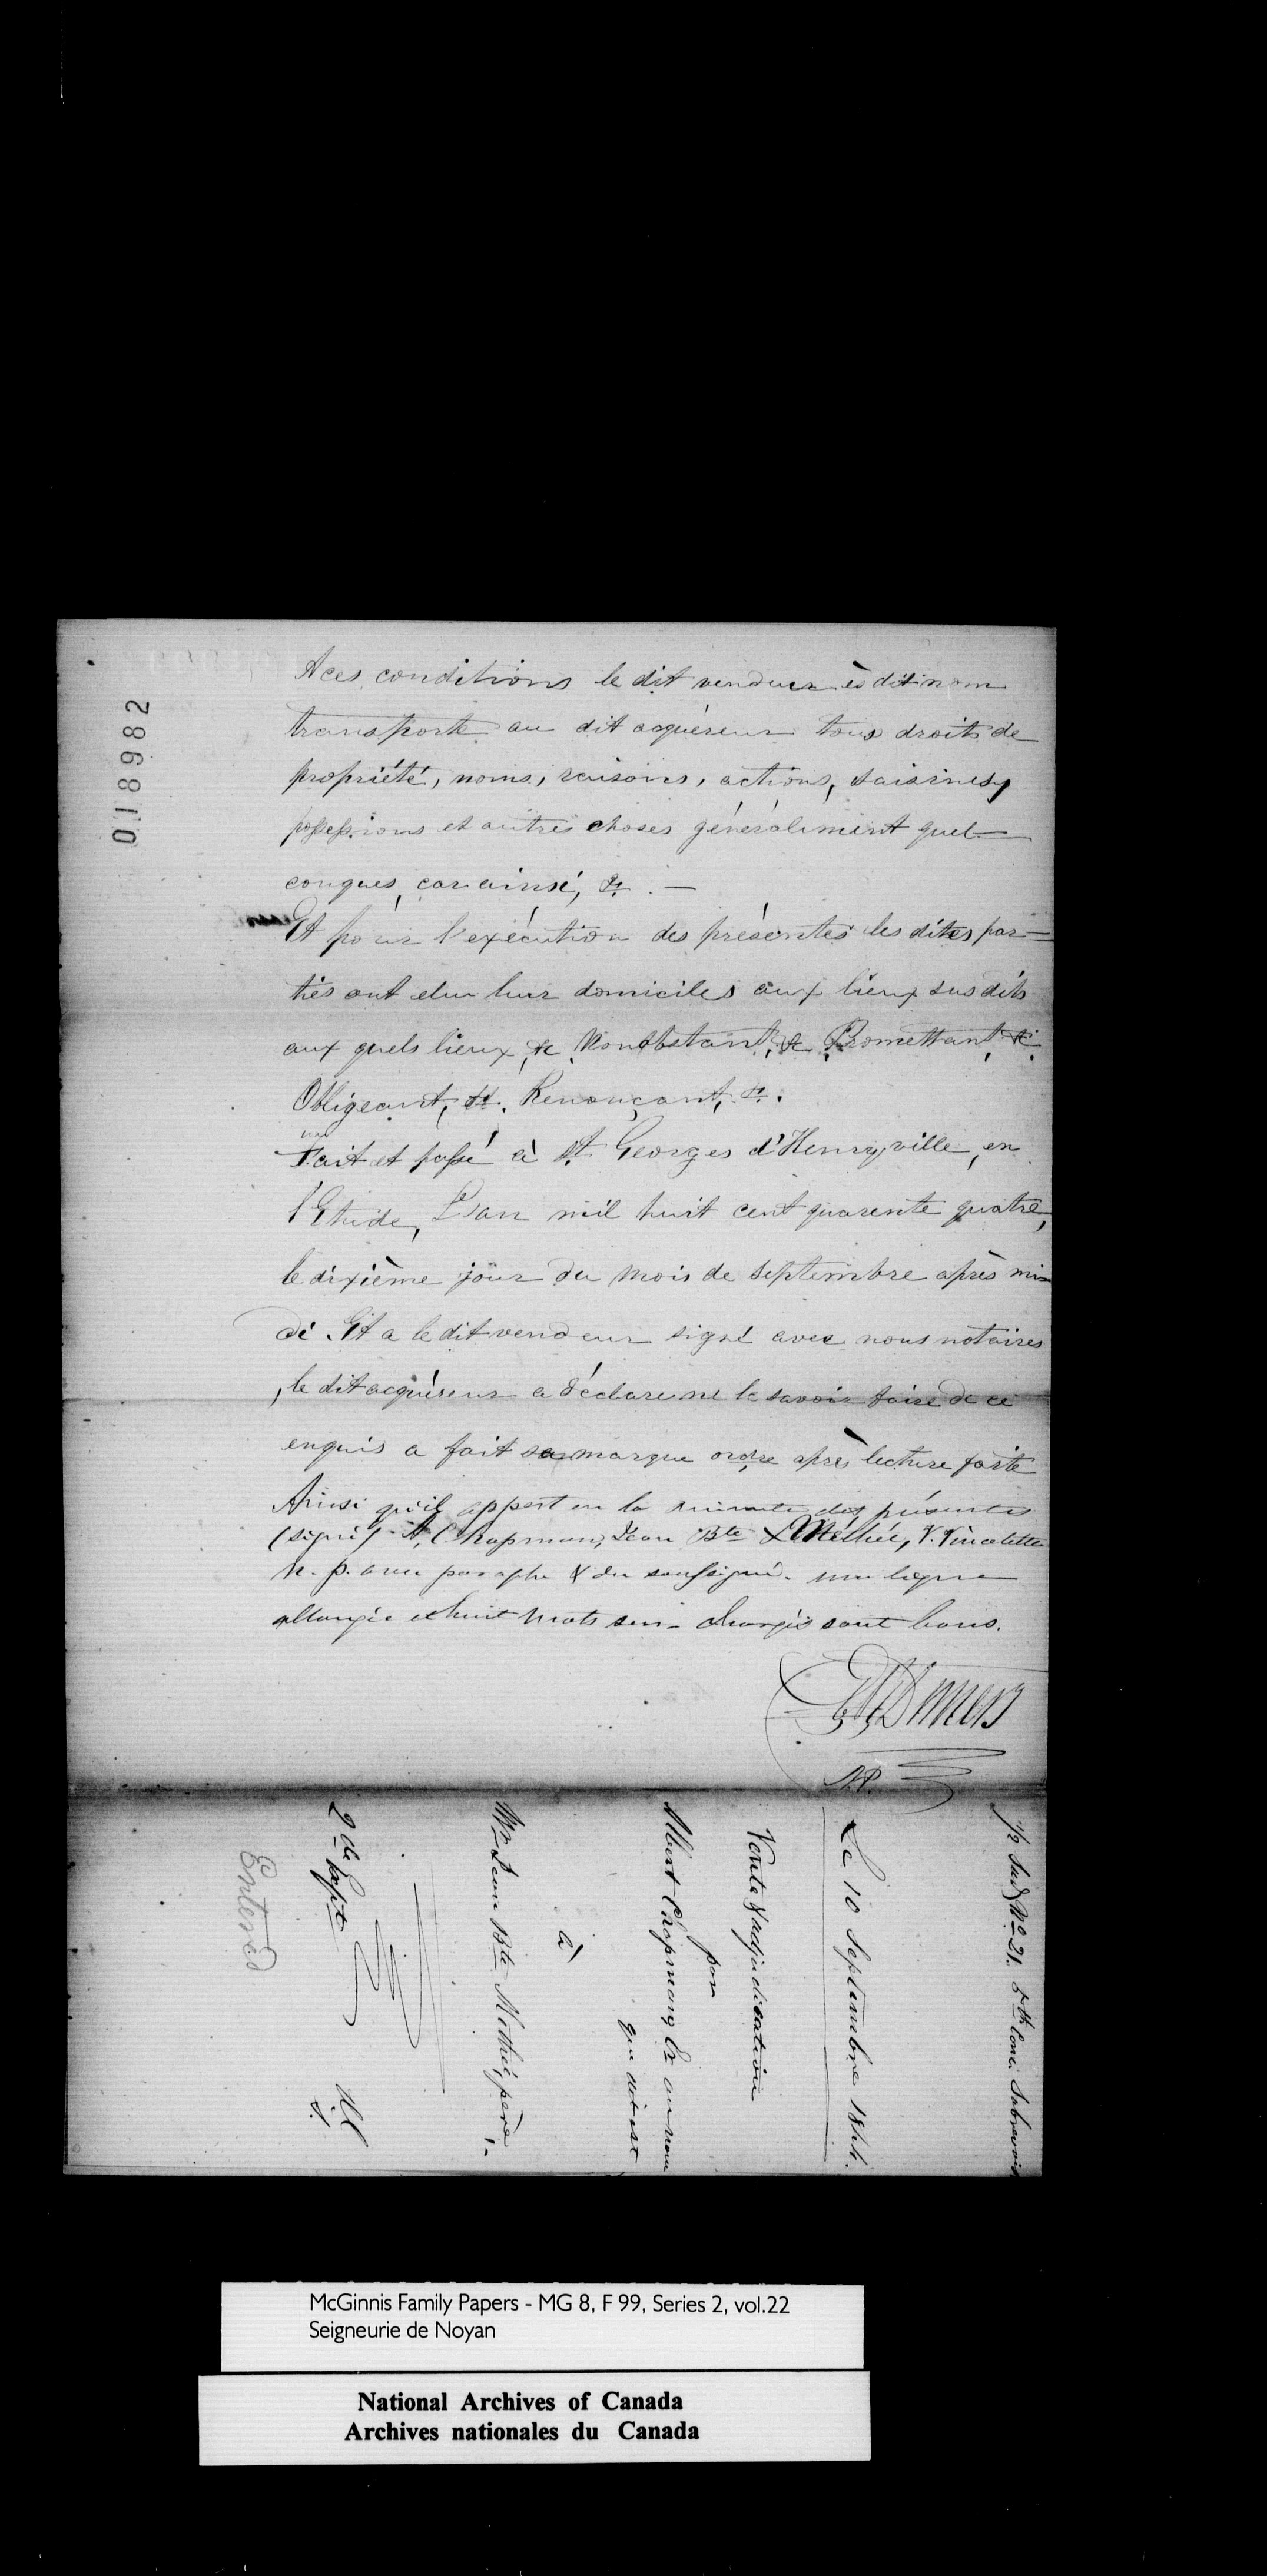 018982
A ces conditions le dit vendeur ès dit nom
transporte au dit acquéreur tous droits de
propriété, noms, raisons, actions, saisines,
possessions et autres choses généralement quel
conques, car ainsi, &. —
Et pour l'exécution des présentes les dites par=
ties ont elu leur domiciles aux lieux sus dits
aux quels lieux, &c, Nonobstant, &c, Promettant, &c.
Obligeant, &c. Renonçant, &c.
Fait et passé à St Georges d'Henryville, en
l'Etude, L'an mil huit cent quarente quatre,
le dixième jour du mois de septembre après mi=
di. Et a le dit vendeur signé avec nous notaires
, le dit acquéreur a déclaré ne le savoir faire de ce
enquis a fait sa marque ordre après lecture faite
Ainsi qu'il appert en la minute des présentes
(signé) A, Chapman, Jean Bte X Méthié, V. Vincelette
N. p. avec paraphe & du soussigné. une ligne
allongée et huit mots sur-chargés sont bons.
Demers
N.P.
1/2 Sud No 21. 5th Conc. Sabrevois
Le 10 Septembre 1844.
Vente & adjudication
par
Albert Chapman, Er au nom
qu'il est
à
Jean Bte Methié, père,
2 de Sept
Entered
McGinnis Family Papers - MG 8, F 99, Series 2, vol.22
Seigneurie de Noyan
National Archives of Canada
Archives nationales du Canada